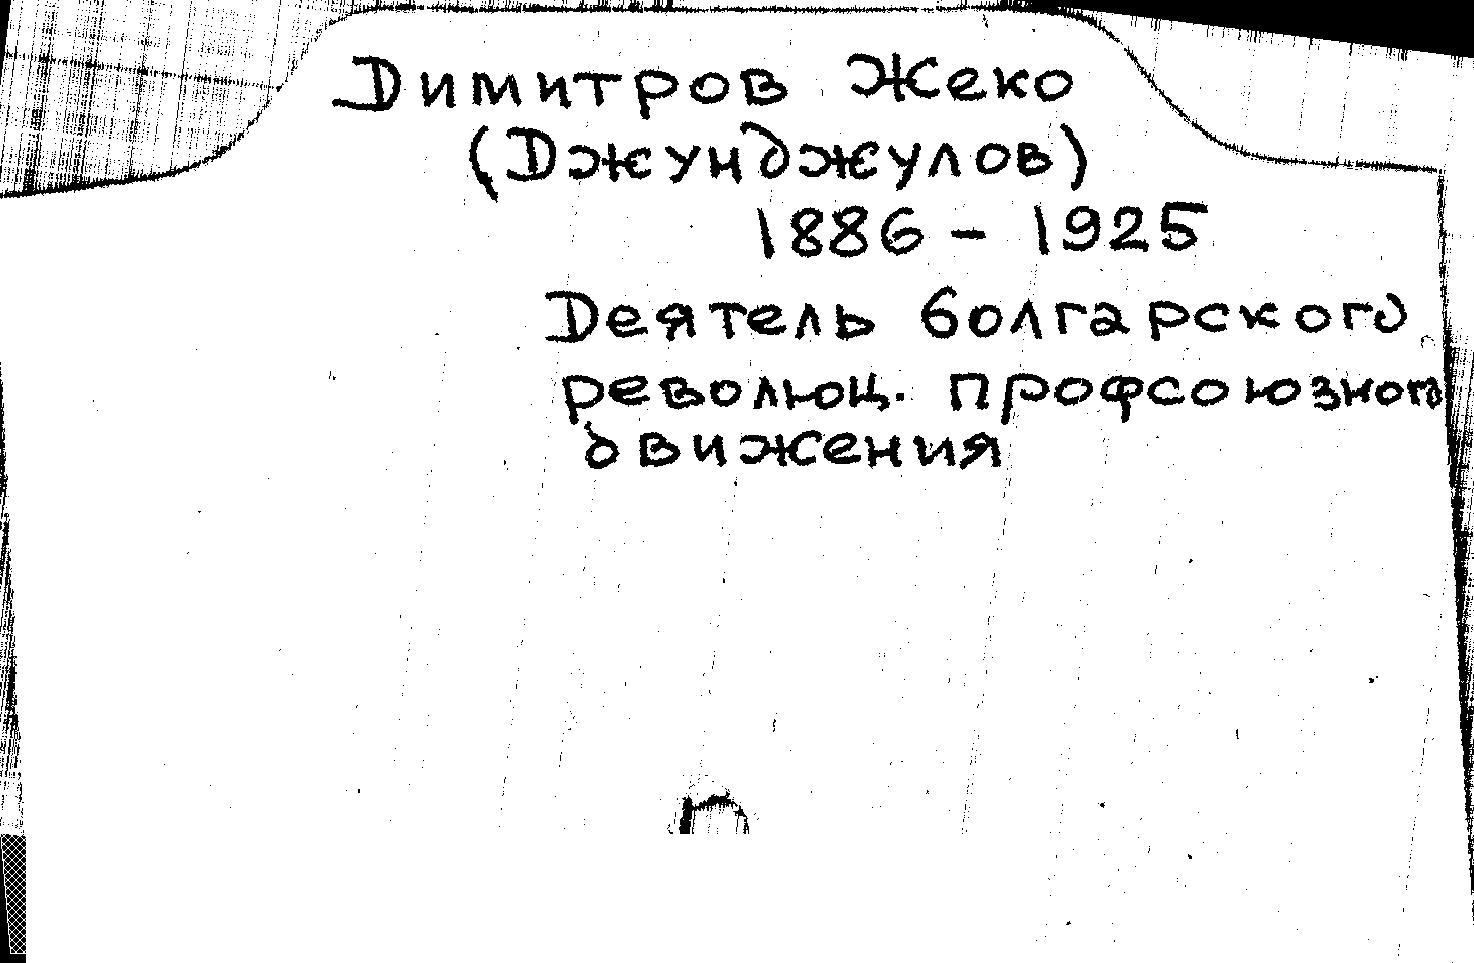 Димитров Жеко
(Джунджулов)
1886 - 1925
Деятель болгарского
революц. профсоюзного
движения